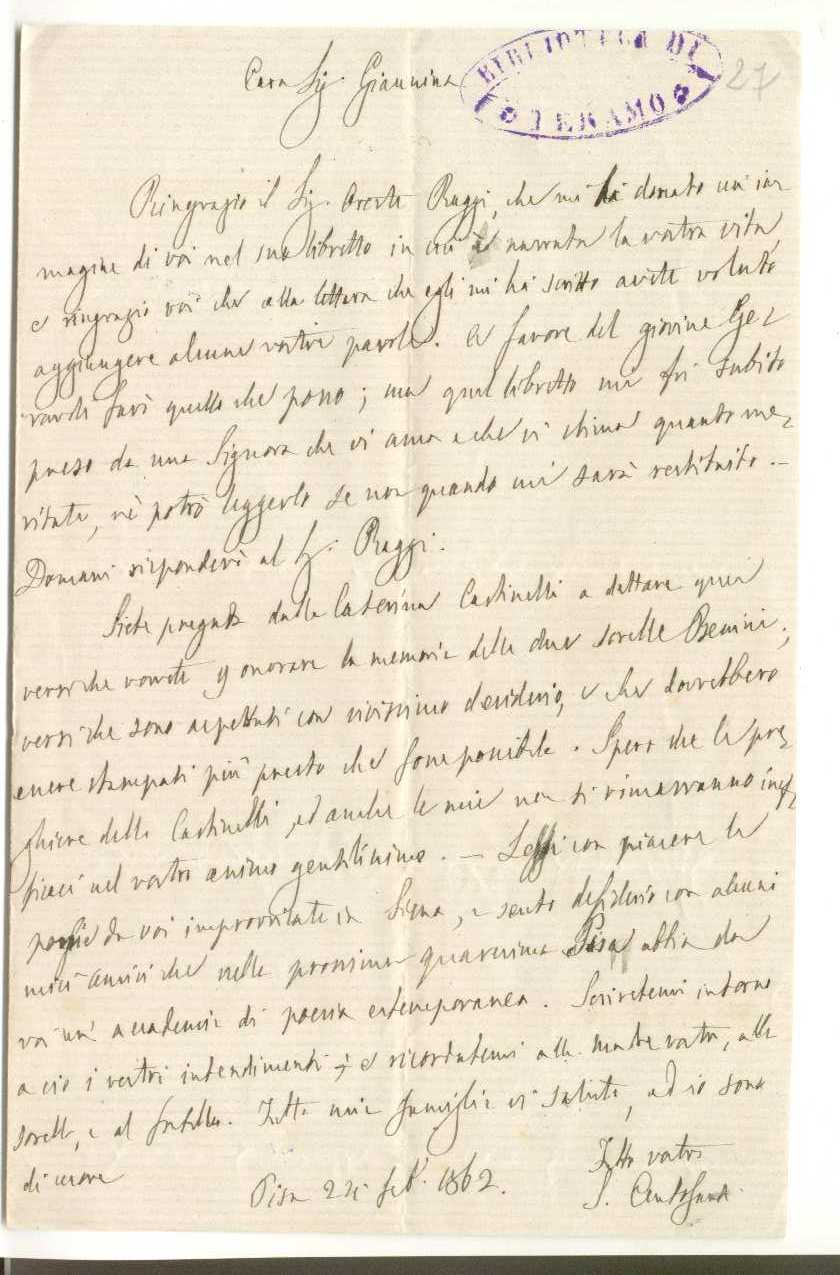 BIBLIOTECA DI
TERAMO
27
Cara Sig. Giannina
Ringrazio il Sig. Oreste Raggi, che mi ha donato un'im-
magine di voi nel suo libretto in cui è narrata la vostra vita
e ringrazio voi che alla lettera che egli mi ha scritto avete voluto
aggiungere alcune vostre parole. A favore del giovine
farò quello che posso; ma quel libretto mi fu subito
preso da una Signora che vi ama e che vi stima quanto me-
ritate, nè potrò leggerlo se non quando mi sarà restituito. —
Domani risponderò al Sig. Raggi.
Siete pregata dalla Caterina Castinelli a dettare quei
versi che vorrete onorare la memoria delle due sorelle
versi che sono aspettati con vivissimo desiderio, e che dovrebbero
essere stampati più presto che fosse possibile. Spero che le pre-
ghiere della Castinelli, ed anche le mie non si rimarranno inef-
ficaci nel vostro animo gentilissimo. — Lessi con piacere le
poesie da voi improvvisate in Siena, e sento desiderio con alcuni
miei amici che nella prossima quaresima Pisa abbia da
voi un' accademia di poesia estemporanea. Scrivetemi intorno
a ciò i vostri intendimenti; e ricordatemi alla madre vostra, alle
sorelle, e al fratello. Tutta mia famiglia vi saluta, ed io sono
di cuore
Tutto vostro
Pisa 22 feb. 1862.
S. Centofanti